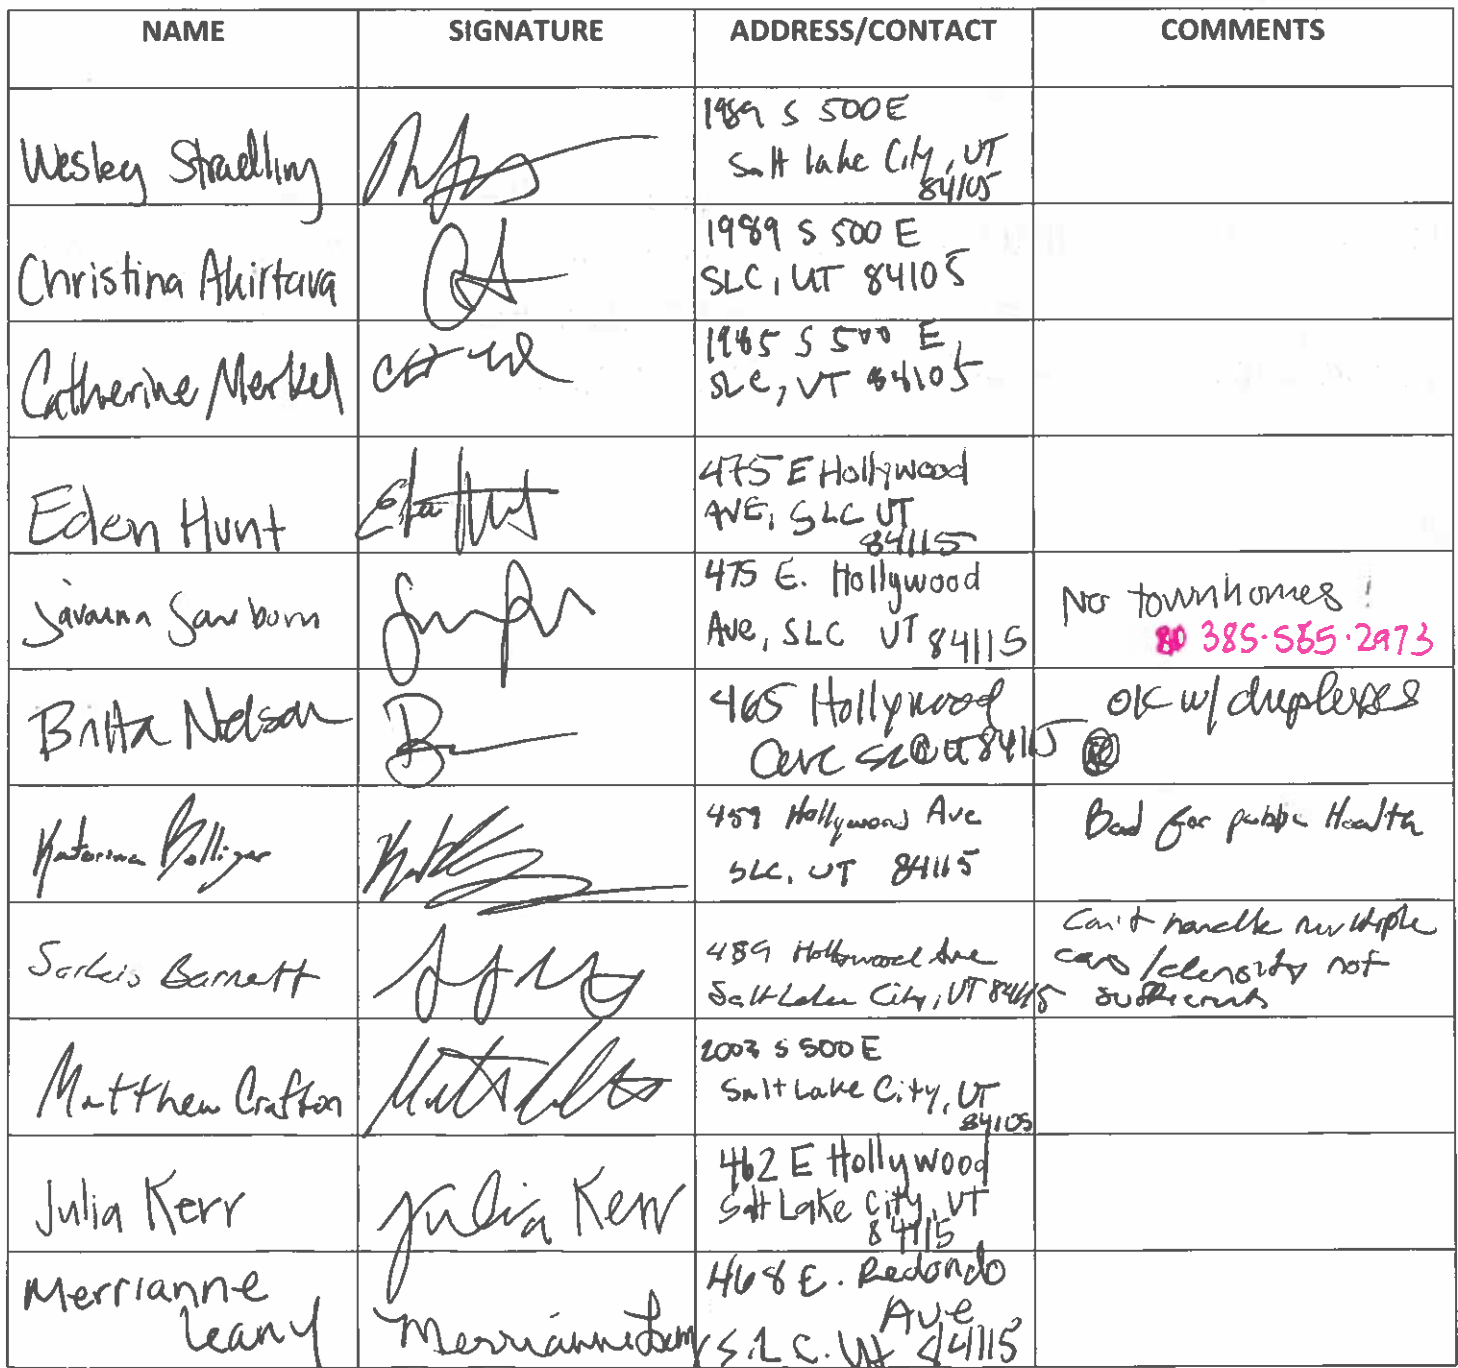 NAME SIGNATURE ADDRESS/CONTACT COMMENTS
Wesley Stradling
1989 S 500 E
Salt Lake City, UT
84105
Christina Akirtava
1989 S 500 E
SLC, UT 84105
Catherine Merkel
1985 S 500 E,
SLC, UT 84105
Eden Hunt
475 E Hollywood
AVE, SLC UT
84115
475 E. Hollywood
Ave, SLC UT 84115
No townhomes!
385-565-2973
Britta Nelson B
465 Hollywood
Ave SLC UT 84115
OK w/ duplexes
Katarina Bolliger
459 Hollywood Ave
SLC, UT 84115
Bad for public Health
Sarkis Barnett
489 Hollywood Ave
Salt Lake City, UT 84115
Can't handle multiple
cars/density not
Matthew Crafton
2003 S 500 E
Salt Lake City, UT
84105
Julia Kerr Julia Kerr
462 E Hollywood
Salt Lake City, UT
84115
Merrianne
Leany
Merrianne
468 E. Redondo
Ave
S.L.C. Ut 84115